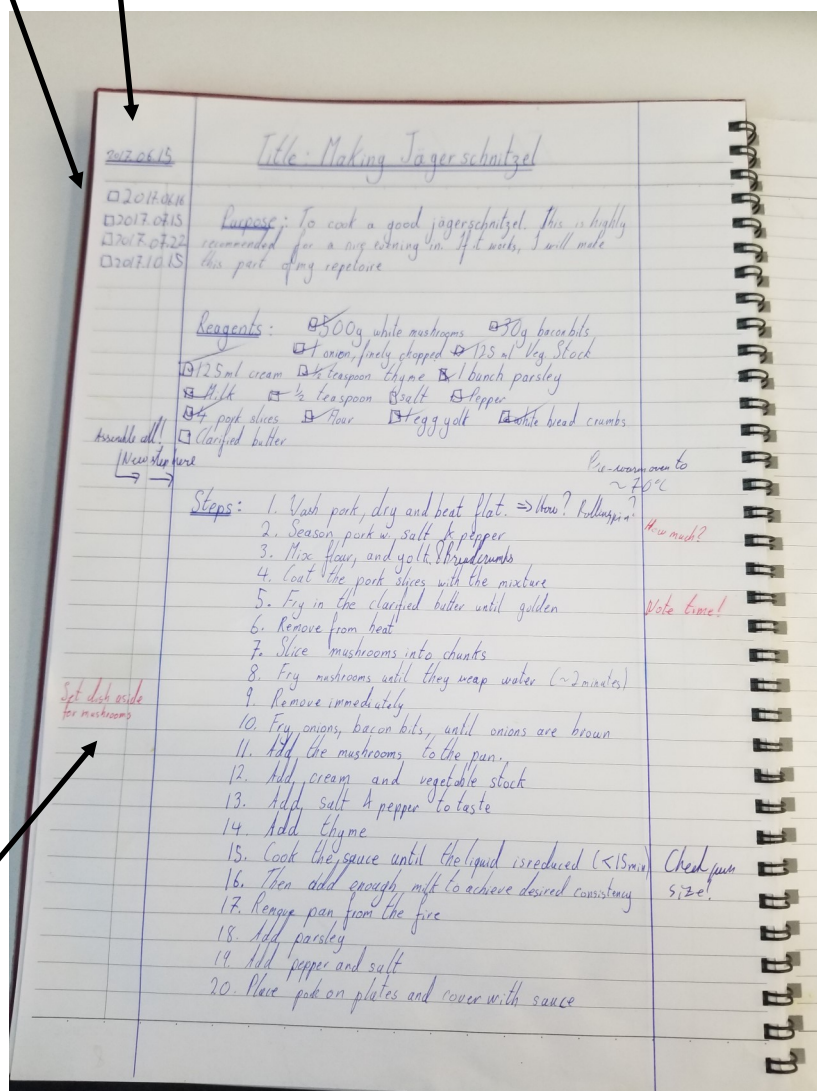 2017.06.15
Title: Making Jägerschnitzel
☐2017.06.16
☐2017.07.15
☐2017.07.22
☐2017.10.15
Purpose: To cook a good jägerschnitzel. This is highly
recommended for a nice evening in. If it works, I will make
this part of my repetoire
Reagents: 500g white mushrooms 30g bacon bits
1 onion, finely chopped 125 ml Veg. Stock
125ml cream ½ teaspoon thyme 1 bunch parsley
Milk ½ teaspoon salt Pepper
4 pork slices flour 1 egg yolk white bread crumbs
Assemble all! Clarified butter
New step here
Pre-warm oven to
~70°C
Steps: 1. Wash pork, dry and beat flat. => How? Rolling pin?
2. Season pork w, salt & pepper How much?
3. Mix flour, and yolk & breadcrumbs
4. Coat the pork slices with the mixture
5. Fry in the clarified butter until golden Note time!
6. Remove from heat
7. Slice mushrooms into chunks
8. Fry mushrooms until they weap water (~2 minutes)
Set dish aside
for mushrooms
9. Remove immediately
10. Fry onions, bacon bits, until onions are brown
11. Add the mushrooms to the pan.
12. Add cream and vegetable stock
13. Add salt & pepper to taste
14. Add thyme
15. Cook the sauce until the liquid is reduced (<15min) Check
size!
16. Then add enough milk to achieve desired consistency
17. Remove pan from the fire
18. Add parsley
19. Add pepper and salt
20. Place pork on plates and cover with sauce